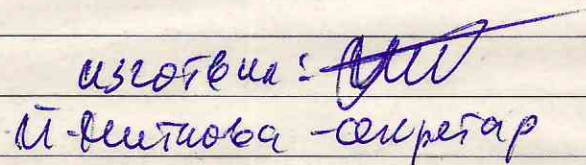 изготвил:
Й. Миткова - секретар